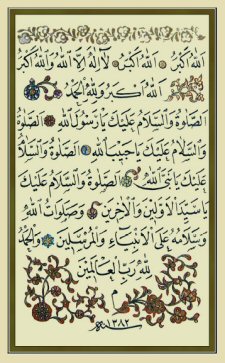 اللهُ اَكْبَرُ اللهُ اَكْبَرُ لَا اِلٰهَ اِلَّا اللهُ وَاللهُ اَكْبَرُ
اَللهُ اَكْبَرُ وَلِلّٰهِ الْحَمْدُ
اَلصَّلٰوةُ وَالسَّلَامُ عَلَيْكَ يَا رَسُولَ اللهِ اَلصَّلٰوةُ
وَالسَّلَامُ عَلَيْكَ يَا حَبِيبَ اللهِ اَلصَّلٰوةُ وَالسَّلَامُ
عَلَيْكَ يَا نَبِيَّ اللهِ اَلصَّلٰوةُ وَالسَّلَامُ عَلَيْكَ
يَا سَيِّدَ الْاَوَّلِينَ وَالْاٰخِرِينَ وَصَلَوَاتُ اللهِ
وَسَلَامُهُ عَلَى الْاَنْبِيَاءِ وَالْمُرْسَلِينَ وَالْحَمْدُ
لِلّٰهِ رَبِّ الْعَالَمِينَ
١٣٨٢